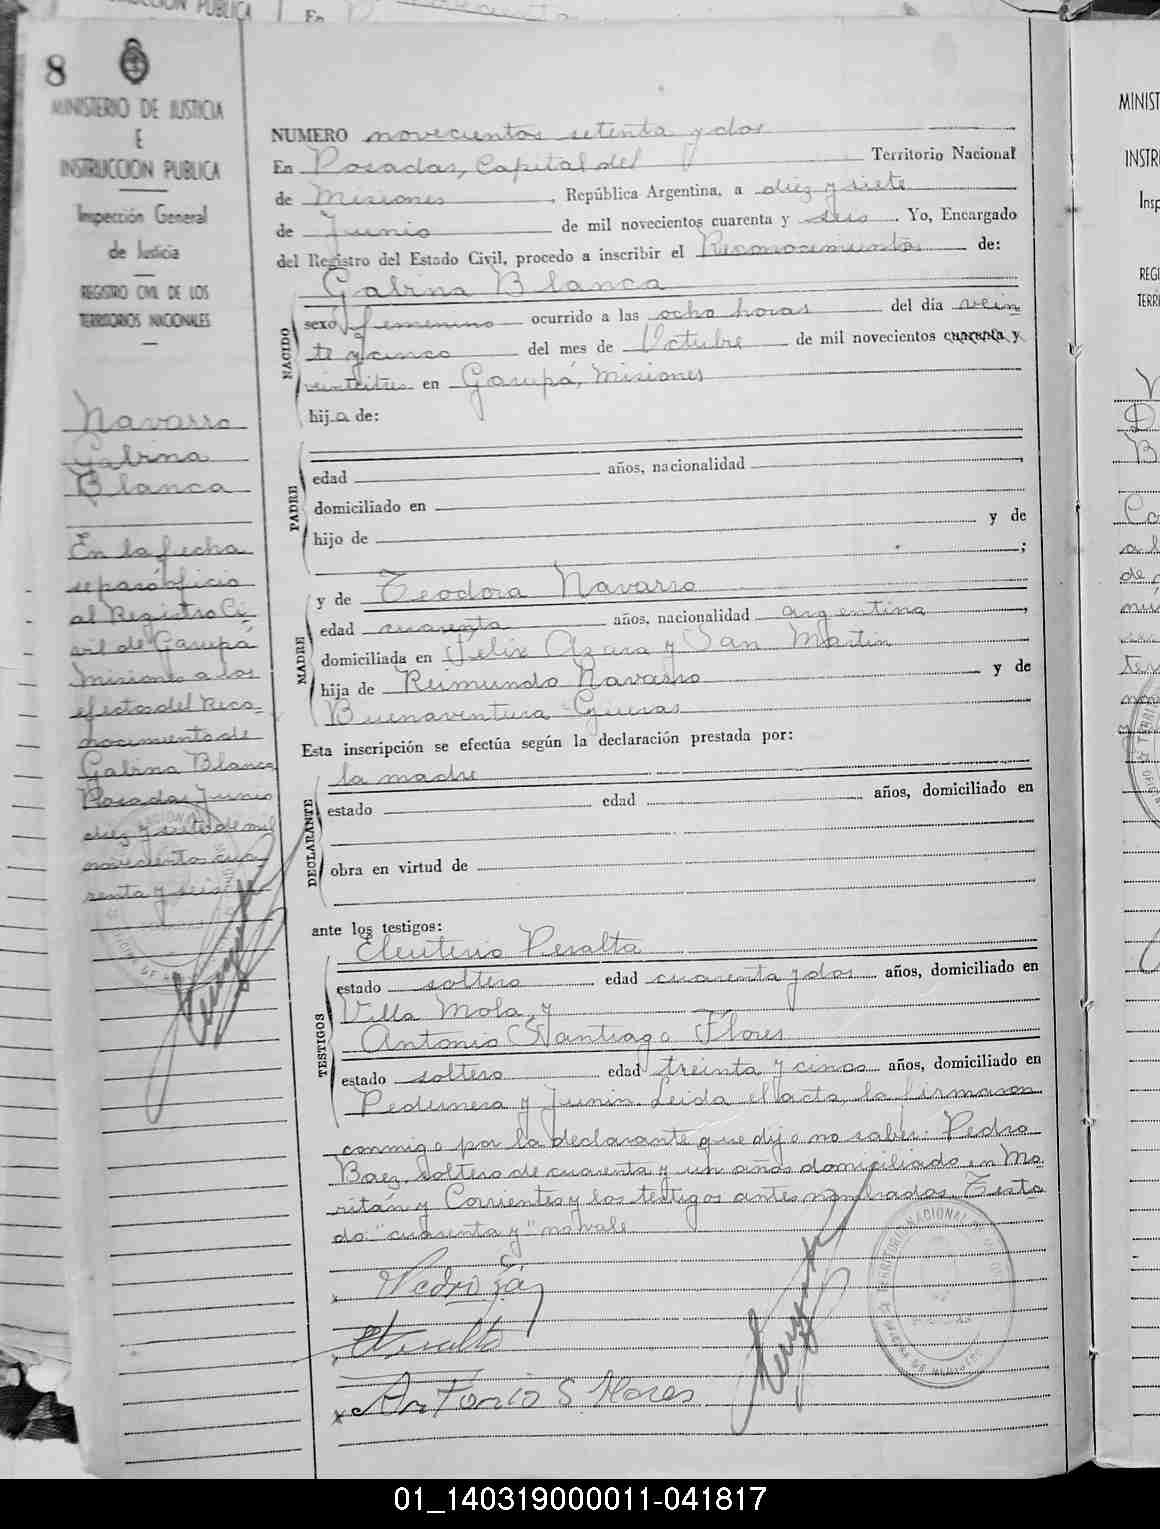 8
MINISTERIO DE JUSTICIA
E
INSTRUCCION PUBLICA
Inspección General
de Justicia
REGISTRO CIVIL DE LOS
TERRITORIOS NACIONALES
Navarro
Gabina
Blanca
En la fecha
se pasó oficio
al Registro Ci-
vil de Garupá
Misiones a los
efectos del Reco-
nocimiento de
Gabina Blanca
Posadas, Junio
diez y siete de mil
novecientos cua-
renta y seis
NUMERO novecientos setenta y dos
En Posadas, Capital del Territorio Nacional
de Misiones, República Argentina, a diez y siete
de Junio de mil novecientos cuarenta y seis. Yo, Encargado
del Registro del Estado Civil, procedo a inscribir el Reconocimiento de:
Gabina Blanca
NACIDO
sexo femenino ocurrido a las ocho horas del día vein
te y cinco del mes de Octubre de mil novecientos cuarenta y
veintitres en Garupá, Misiones
hija de:
PADRE
edad años, nacionalidad
domiciliado en
hijo de y de
;
MADRE
y de Teodora Navarro
edad cuarenta años, nacionalidad argentina,
domiciliada en Felix Azara y San Martin
hija de Reimundo Navarro y de
Buenaventura
Esta inscripción se efectúa según la declaración prestada por:
DECLARANTE
la madre
estado edad años, domiciliado en
obra en virtud de
ante los testigos:
TESTIGOS
Eleuterio Peralta
estado soltero edad cuarenta y dos años, domiciliado en
Villa Mola, y
Antonio Santiago Flores
estado soltero edad treinta y cinco años, domiciliado en
Pedernera y Junin. Leida el acta, la firmaron
conmigo por la declarante que dijo no saber: Pedro
Baez, soltero de cuarenta y un años domiciliado en Mo
ritán y Corrientes y los testigos antes nombrados. Testa
do: "cuarenta y" no vale
Pedro
Peralta
Antonio S Flores
01_140319000011-041817